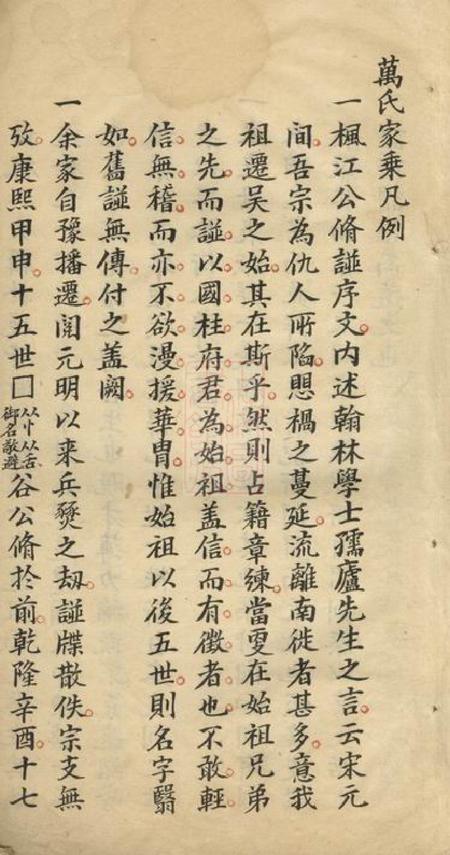 萬氏家乘凡例
一楓江公脩諩序文内述翰林學士孺廬先生之言云宋元
間吾宗為仇人所陷思禍之蔓延流離南徙者甚多意我
祖遷吳之始其在斯乎然則占籍章練當更在始祖兄弟
之先而諩以國柱府君為始祖盖信而有徵者也不敢輕
信無稽而亦不欲漫援華胄惟始祖以後五世則名字翳
如舊諩無傳付之盖闕
一余家自豫播遷閱元明以来兵燹之刼諩牒散佚宗支無
攷康熙甲申十五世□从忄从舌御名敬避谷公脩扵前乾隆辛酉十七